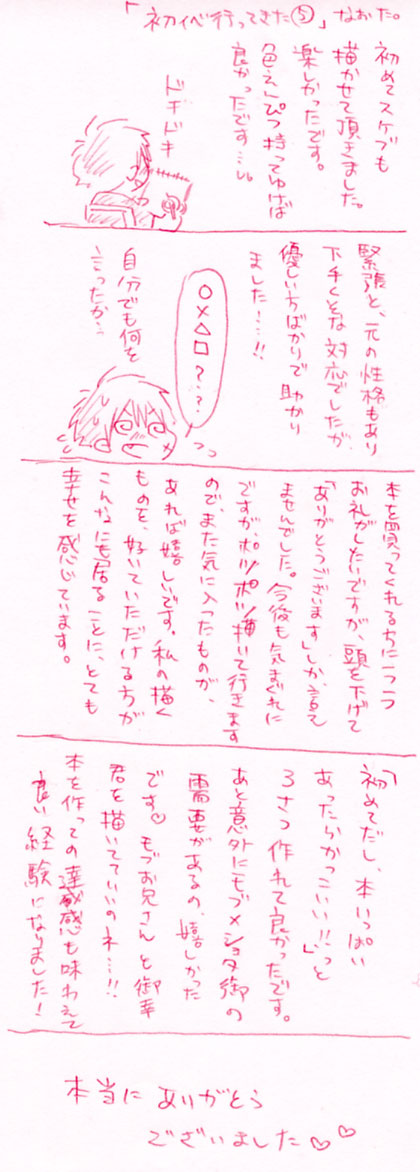 「初イベ行ってきた⑤」なおた。
初めてスケブも
描かせて頂きました。
楽しかったです。
色えんぴつ持ってゆけば
良かったです…。
ドキドキ
緊張と、元の性格もあり
下手くそな対応でしたが、
優しい方ばかりで助かり
ました!…!!
○×△□?…?
自分でも何を
言ったか…
本を買ってくれる方に一つ一つ
お礼がしたいですが、頭を下げて
「ありがとうございます」しか、言て
ませんでした。今後も気まぐれに
ですが、ポツポツ描いて行きます
ので、また気に入ったものが、
あれば嬉しいです。私の描く
ものを、好いていただける方が
こんなにも居ることに、とても
幸せを感じています。
「初めてだし、本いっぱい
あったらかっこいい!!」っと
3さつ作れて良かったです。
あと意外にモブ×ショタ御の
需要があるの、嬉しかった
です♡モブお兄さんと御幸
君を描いてていいのネ…!!
本を作っての達成感も味わえて
良い経験になりました!
本当にありがとう
ございました♡♡